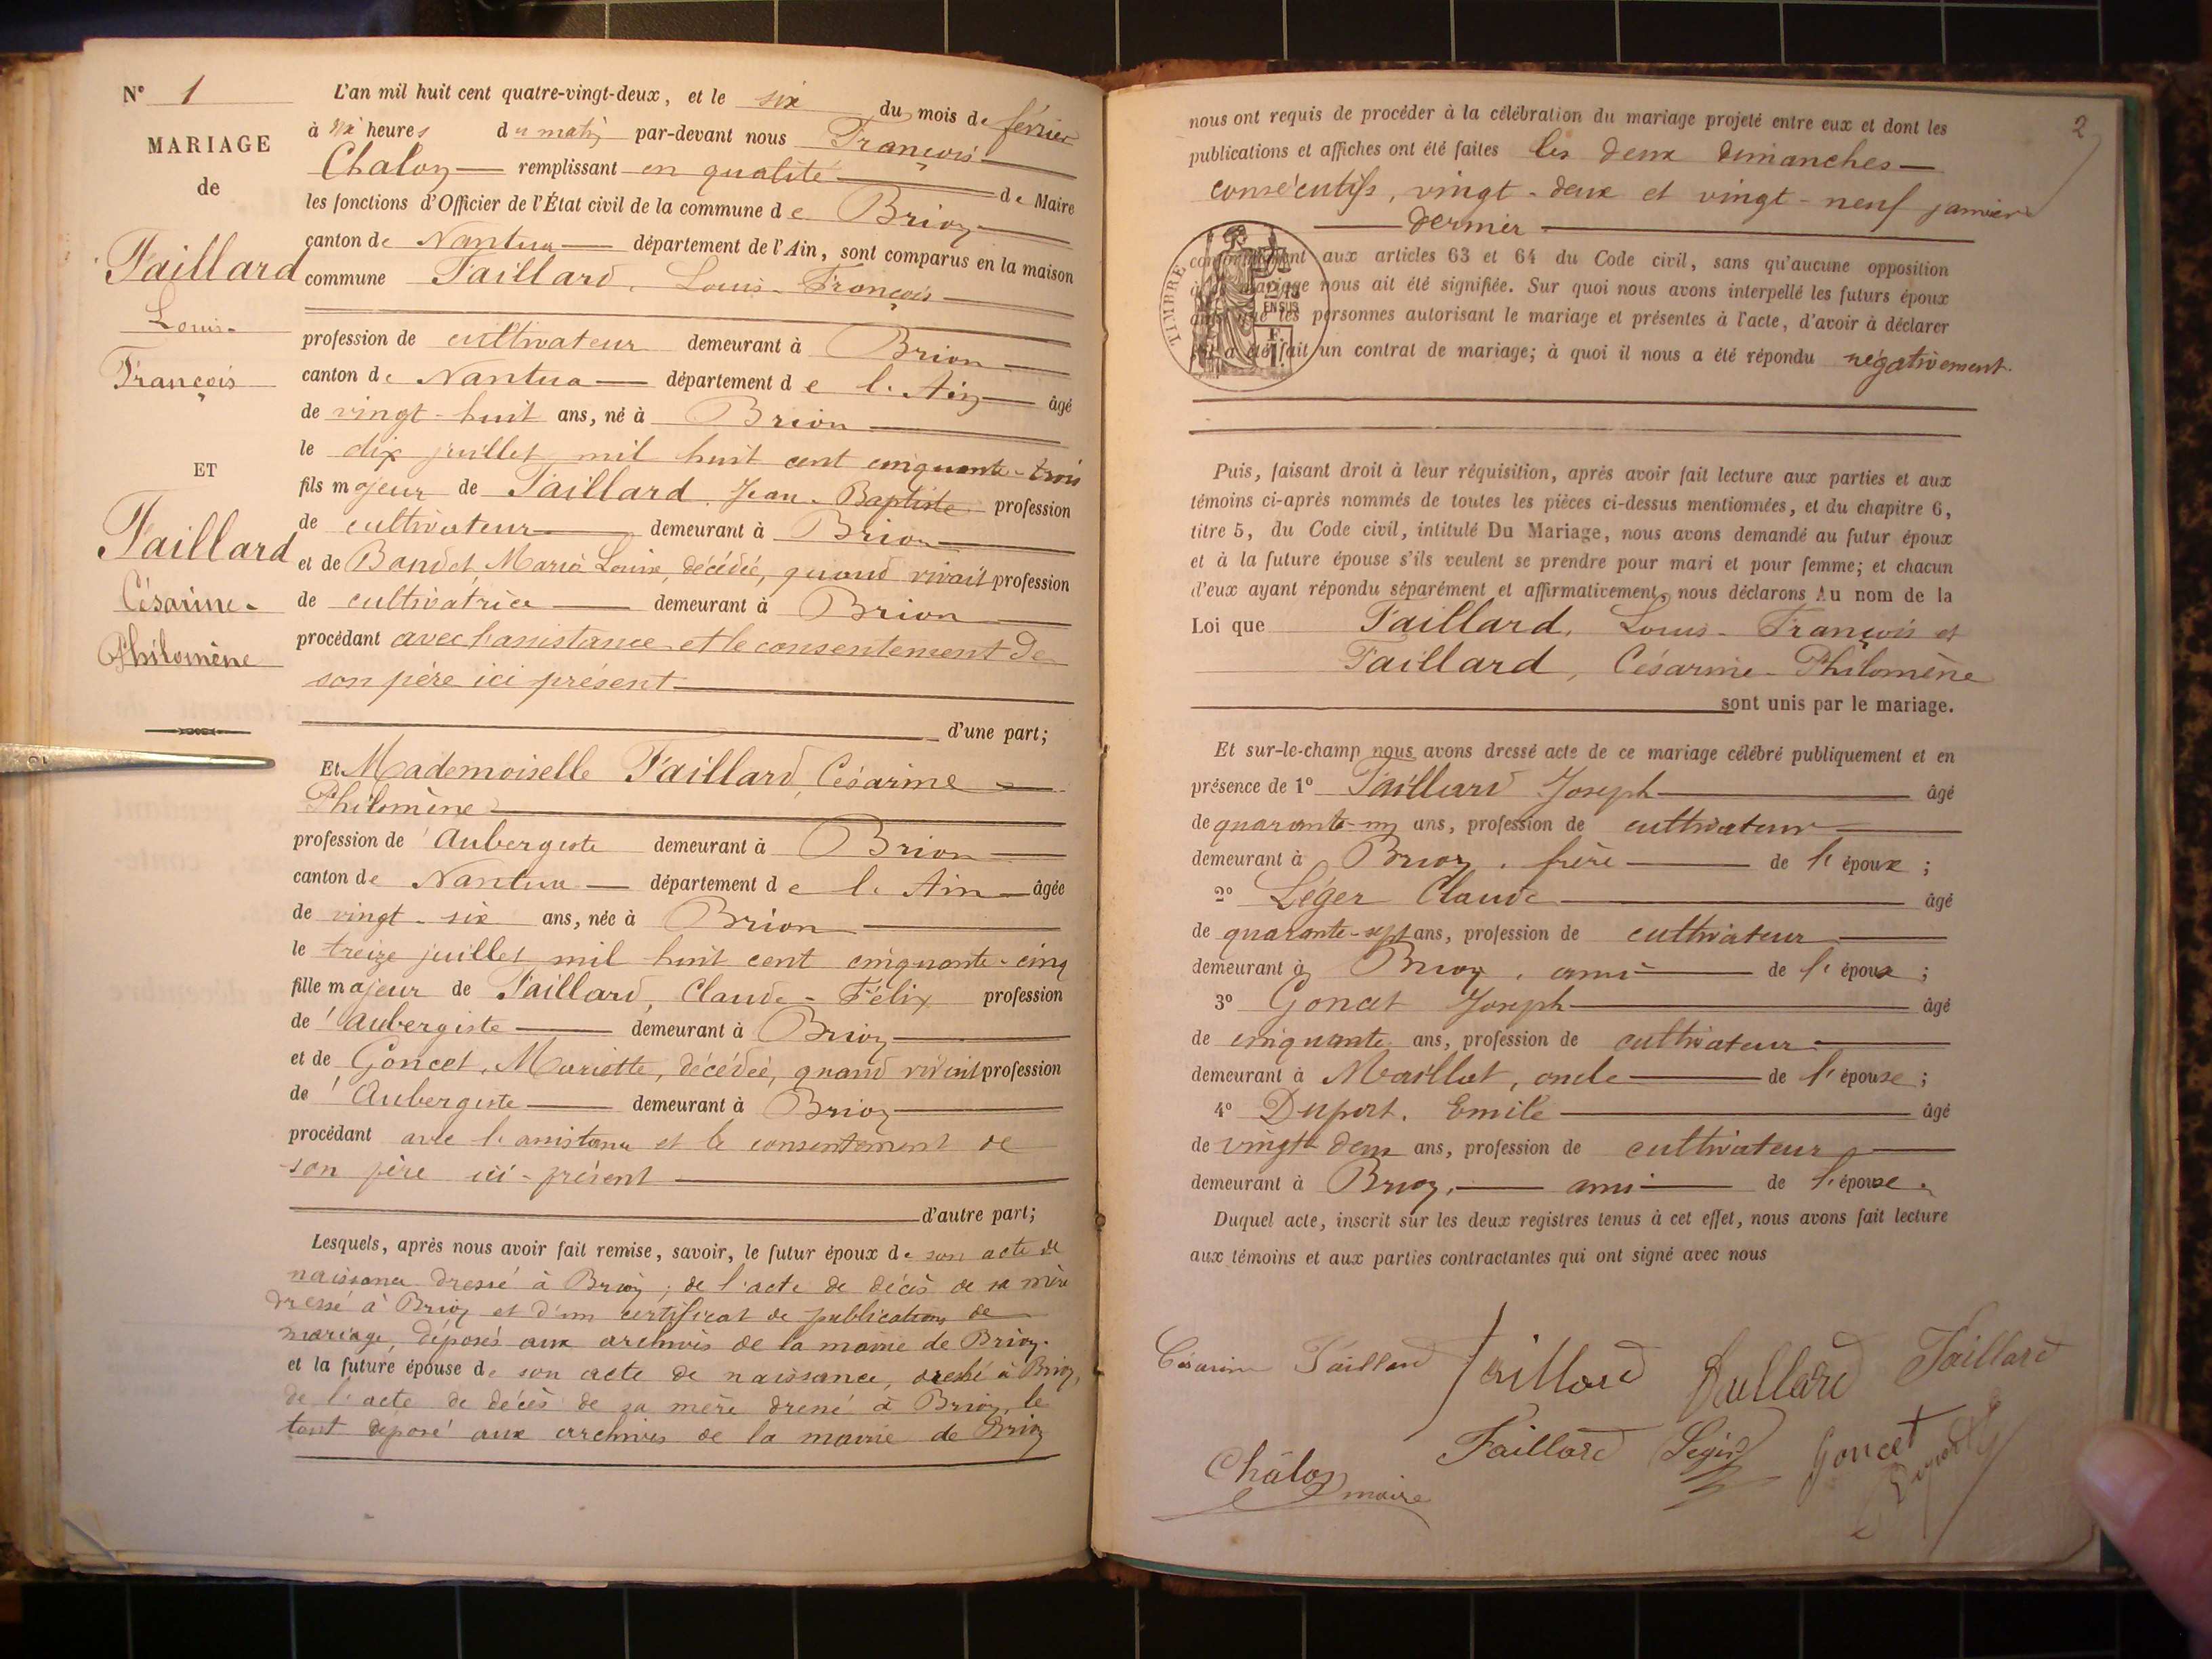 N° 1
MARIAGE
de
Taillard
Louis-
François
ET
Taillard
Césarine-
Philomène
L'an mil huit cent quatre-vingt-deux, et le six du mois de février
à dix heures du matin par-devant nous François
Chalon remplissant en qualité de Maire
les fonctions d'Officier de l'État civil de la commune de Brion
canton de Nantua département de l'Ain, sont comparus en la maison
commune Taillard, Louis-François
profession de cultivateur demeurant à Brion
canton de Nantua département de l'Ain âgé
de vingt-huit ans, né à Brion
le dix juillet mil huit cent cinquante-trois
fils majeur de Taillard Jean-Baptiste profession
de cultivateur demeurant à Brion
et de Maria Louise, décédée, quand vivait profession
de cultivatrice demeurant à Brion
procédant avec l'assistance et le consentement de
son père ici présent
d'une part;
Et Mademoiselle Taillard, Césarine
Philomène
profession de Aubergiste demeurant à Brion
canton de Nantua département de l'Ain âgée
de vingt-six ans, née à Brion
le treize juillet mil huit cent cinquante-cinq
fille majeur de Taillard, Claude-Félix profession
de Aubergiste demeurant à Brion
et de Goncet, Mariette, décédée, quand vivait profession
de Aubergiste demeurant à Brion
procédant avec l'assistance et le consentement de
son père ici-présent
d'autre part;
Lesquels, après nous avoir fait remise, savoir, le futur époux de son acte de
naissance dressé à Brion; de l'acte de décès de sa mère
dressé à Brion et d'un certificat de publications de
mariage, déposés aux archives de la mairie de Brion.
et la future épouse de son acte de naissance, dressé à Brion,
de l'acte de décès de sa mère dressé à Brion, le
tout déposé aux archives de la mairie de Brion
2
nous ont requis de procéder à la célébration du mariage projeté entre eux et dont les
publications et affiches ont été faites les deux dimanches
consécutifs, vingt-deux et vingt-neuf janvier
dernier
conformément aux articles 63 et 64 du Code civil, sans qu'aucune opposition
à ce mariage nous ait été signifiée. Sur quoi nous avons interpellé les futurs époux
ainsi que les personnes autorisant le mariage et présentes à l'acte, d'avoir à déclarer
s'il a été fait un contrat de mariage; à quoi il nous a été répondu négativement.
TIMBRE
EN SUS
Puis, faisant droit à leur réquisition, après avoir fait lecture aux parties et aux
témoins ci-après nommés de toutes les pièces ci-dessus mentionnées, et du chapitre 6,
titre 5, du Code civil, intitulé Du Mariage, nous avons demandé au futur époux
et à la future épouse s'ils veulent se prendre pour mari et pour femme; et chacun
d'eux ayant répondu séparément et affirmativement, nous déclarons Au nom de la
Loi que Taillard, Louis-François et
Taillard, Césarine-Philomène
sont unis par le mariage.
Et sur-le-champ nous avons dressé acte de ce mariage célébré publiquement et en
présence de 1° Taillard Joseph âgé
de quarante-un ans, profession de cultivateur
demeurant à Brion, frère de l'époux;
2° Léger Claude âgé
de quarante-sept ans, profession de cultivateur
demeurant à Brion, ami de l'époux;
3° Goncet Joseph âgé
de cinquante ans, profession de cultivateur
demeurant à Maillat, oncle de l'épouse;
4° Duport, Emile âgé
de vingt-deux ans, profession de cultivateur
demeurant à Brion, ami de l'épouse.
Duquel acte, inscrit sur les deux registres tenus à cet effet, nous avons fait lecture
aux témoins et aux parties contractantes qui ont signé avec nous
Césarine Taillard Taillard Taillard Taillard
Châlon maire Taillard Léger Goncet Duport